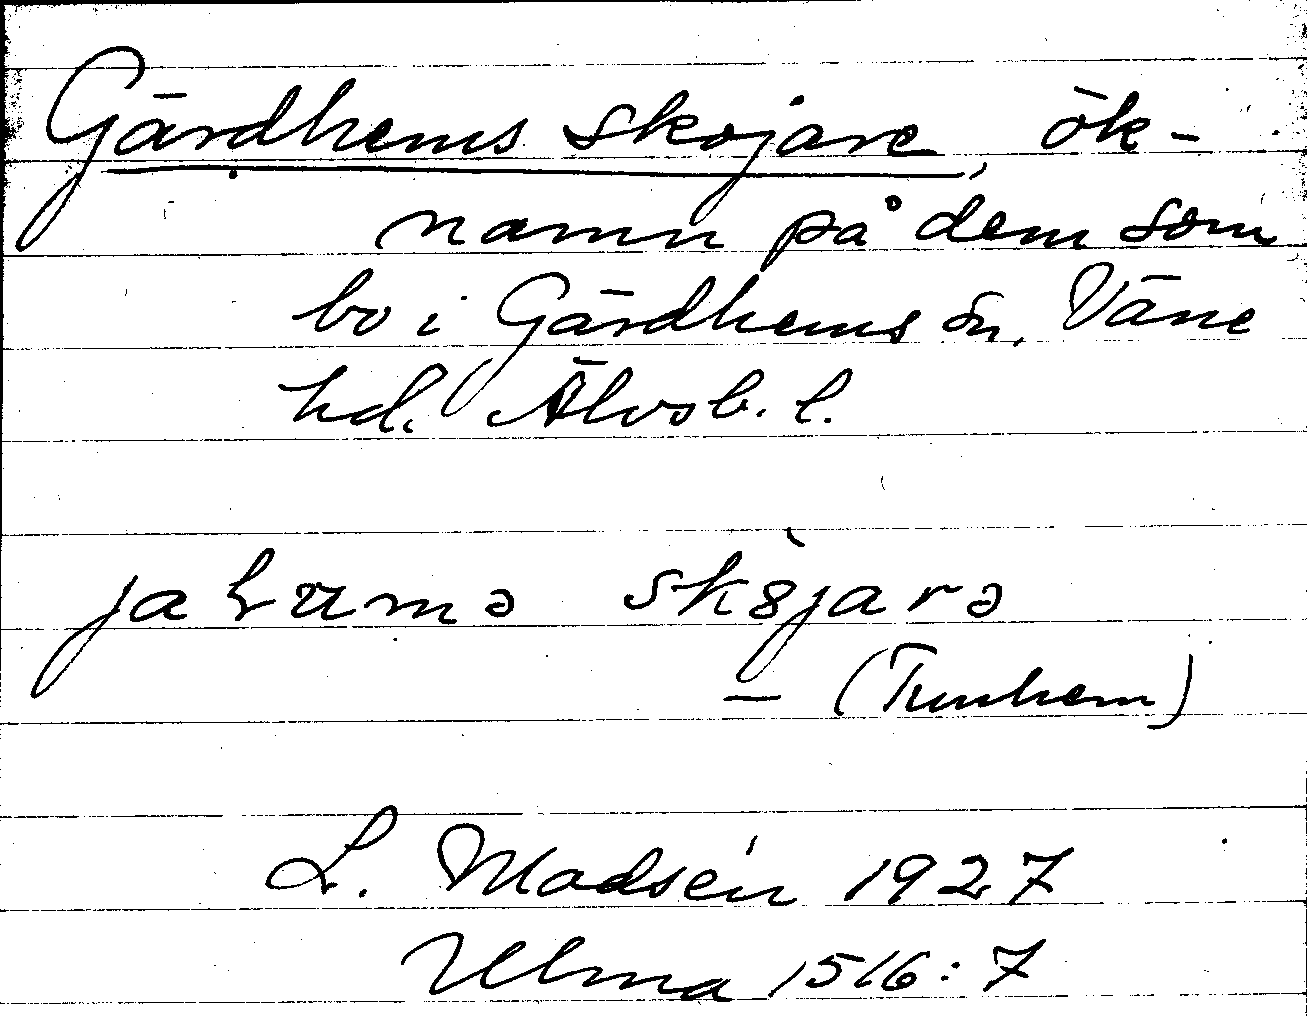 Gärdhems skojare, ök-
namn på dem som
bo i Gärdhems sn, Väne
hd. Älvsb. l.
skøjarə
– (Tunhem)
L. Modsén 1927
Ulma 1516:7